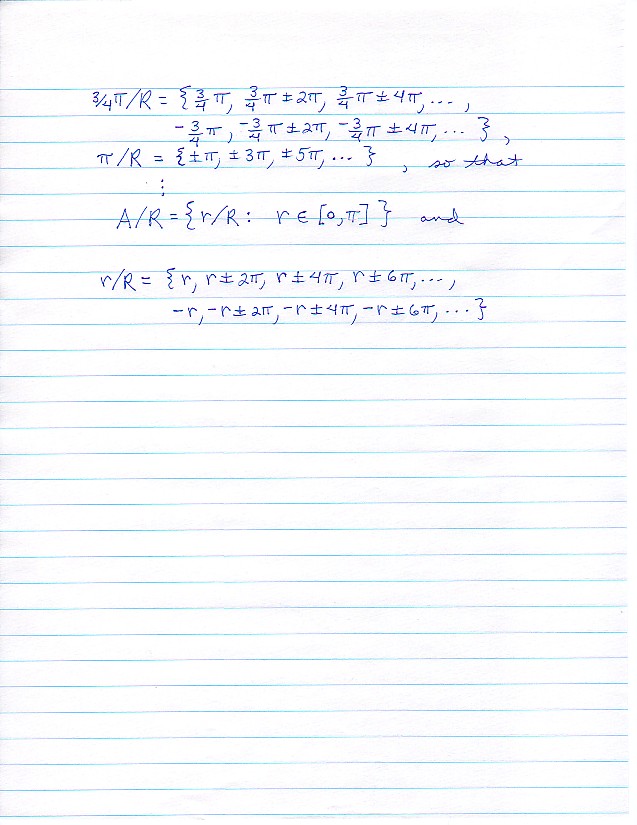 3/4π/R = {3/4 π, 3/4 π ± 2π, 3/4 π ± 4π, ... ,
-3/4 π, -3/4 π ± 2π, -3/4 π ± 4π, ... },
π/R = {±π, ±3π, ±5π, ... } , so that
⋮
A/R = {r/R : r ∈ [0,π] } and
r/R = {r, r ± 2π, r ± 4π, r ± 6π, ... ,
-r, -r ± 2π, -r ± 4π, -r ± 6π, ... }